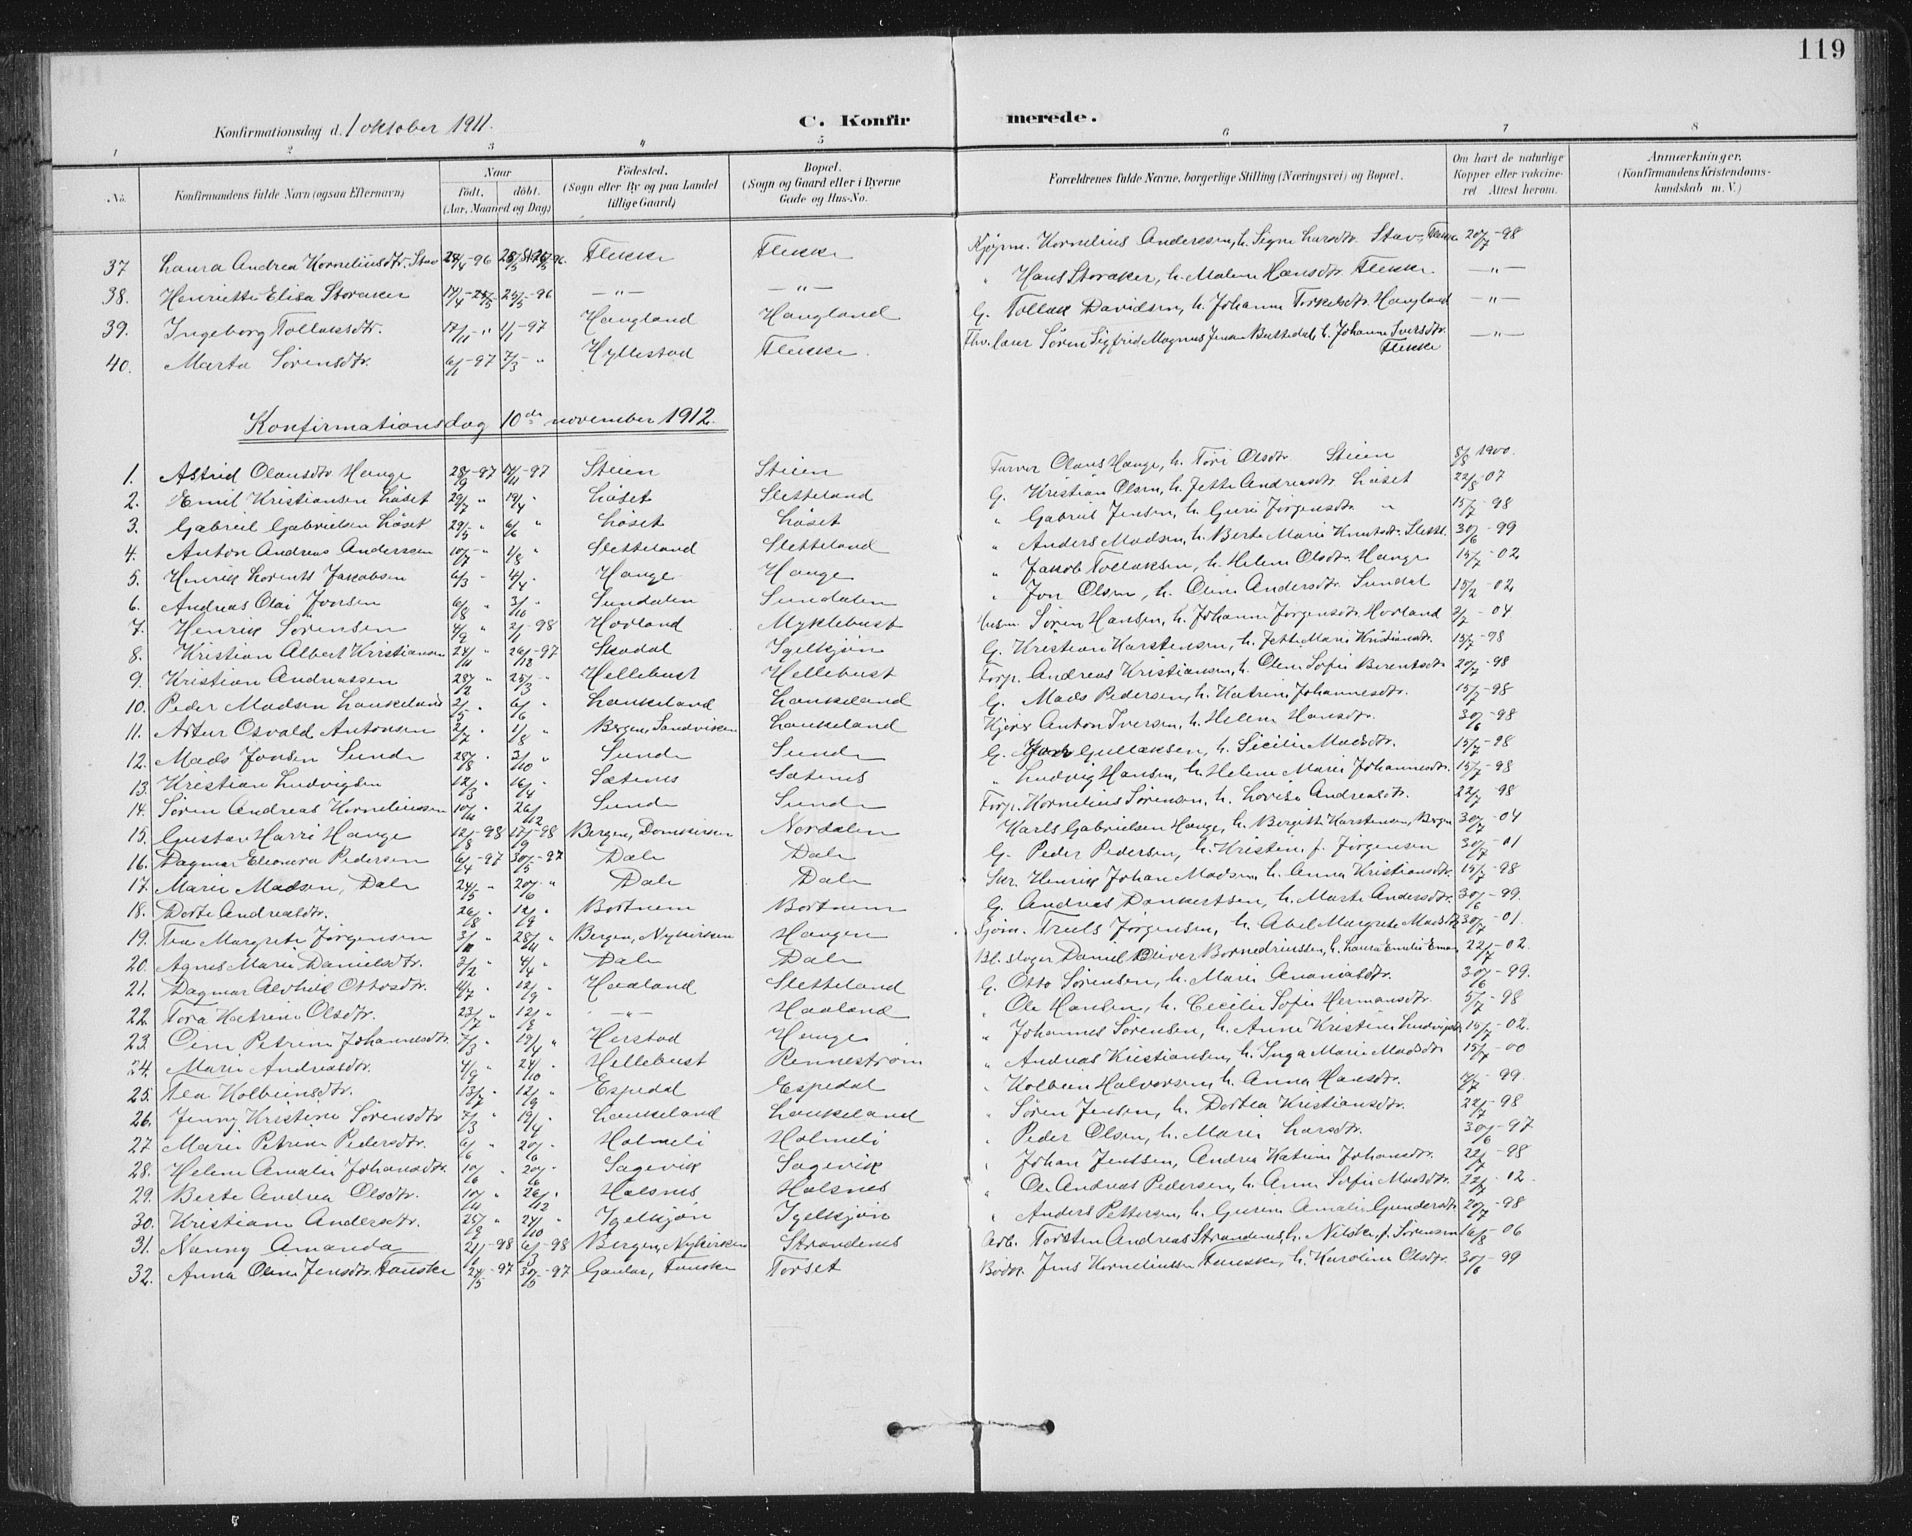 119
Konfirmationsdag d. 1 oktober 1911.
C. Konfirmerede.
1 2 3 4 5 6 7 8
No. Konfirmandens fulde Navn (ogsaa Efternavn) Naar födt. döbt. (Aar, Maaned og Dag) Födested. (Sogn eller By og paa Landet tillige Gaard) Bopæl. (Sogn og Gaard eller i Byerne Gade og Hus-No. Forældrenes fulde Navne, borgerlige Stilling (Næringsvei) og Bopæl. Om havt de naturlige Kopper eller vakcineret. Attest herom. Anmærkninger. (Konfirmandens Kristendomskundskab m. V.)
37 Laura Andrea Korneliusdtr. Stav Flekke Flekke Kjøpm. Kornelius Anderssen, h. Signe Larsdtr. Stav, Flekke 20/7-98
38. Henrikke Elisa Storaker 25/5-96 —"— —"— " Hans Storaker, h. Malene Hansdtr. Flekke —"—
39. Ingeborg Tollaksdtr. 17/11 " 1/1-97 Haugland Haugland G. Tollak Davidsen, h. Johanne Torkelsdtr. Haugland —"—
40. Marta Sørensdtr. 6/1-97 7/3 " Hyllestad Flekke. Søren Sigfrid Magnus Jensen h. Johanne Iversdtr. Flekke —"—
Konfirmationsdag 10de november 1912.
1. Astrid Olausdtr Hauge 28/9-97 14/11-97 Steien Steien Farver Olaus Hauge, h. Tori Olsdtr. Steien 8/8 1900.
2. Emil Kristiansen Løset 29/7 " 19/4 " Løset Sletteland G. Kristian Olsen, h. Jette Andreasdtr. Løset 22/8-07
3. Gabriel Gabrielsen Løset 29/5 " 6/6 " Løset Løset " Gabriel Jensen, h. Guri Jørgensdtr. " 15/7-98
4. Anton Andreas Anderssen 10/7 " 1/8 " Sletteland Sletteland " Anders Madsen, h. Berte Marie Knutsdtr. Slettl. 30/6-99
5. Henrik Lorents Jakobsen 6/3 " 4/4 " Hauge Hauge " Jakob Tollaksen, h. Helene Olsdtr. Hauge 15/7-02
6. Andreas Olai Jonsen 6/8 " 3/10 " Sundalen Sundalen " Jon Olsen, h. Oline Andersdtr. Sundal 15/2-02
7. Henrik Sørensen 4/9 " 2/1-98 Hovland Myklebust Husm. Søren Hansen, h. Johanne Jørgensdtr. Hovland 3/7-04
8. Kristian Albert Kristiansen 24/11 " 26/12-97 Skodal Igelkjøn G. Kristian Karstensen, h. Jette Marie Kristiansdtr. 15/7-98
9. Kristian Andreassen 28/2 " 25/3 " Hellebust Hellebust Forp. Andreas Kristiansen, h. Oline Sofie Berentsdtr. 20/7-98
10. Peder Madsen Laukeland 2/5 " 6/6 " Laukeland Laukeland G. Mads Pedersen, h. Katrine Johannesdtr. 15/7-98
11. Artur Osvald Antonsen 2/7 " 1/8 " Bergen, Sandviken Laukeland Anton Iversen, h. Helene Hansdtr. 30/6-98
12. Mads Jonsen Sunde 28/8 " 3/10 " Sunde Sunde G. Gullaksen, h. Sicilie Madsdtr. 15/7-98
13. Kristian Ludvigsen 12/3 " 16/4 " Sætenes Sætenes " Ludvig Hansen, h. Helene Marie Johannesdtr. 15/7-98
14. Søren Andreas Korneliussen 10/11 " 26/12 Sunde Sunde Forp. Kornelius Sørensen, h. Lovise Andreasdtr. 22/7-98
15. Gustav Harri Hauge 12/8-98 17/9-98 Bergen, Domkirken Nordalen Karls Gabrielsen Hauge, h. Birgitte Karstensen, Bergen 30/7-04
16. Dagmar Eleonora Pedersen 6/4-97 30/5-97 Dale Dale G. Peder Pedersen, h. Kristine f. Jørgensen 30/7-01
17. Marie Madsen, Dale 24/5 " 20/6 " Dale Dale Skr. Henrik Johan Madsen, h. Anna Kristiansdtr. 15/7-98
18. Dorte Andreasdtr. 26/8 " 12/9 " Bortnem Bortnem G. Andreas Dankertsen, h. Marte Andersdtr. 30/6-99.
19. Tea Margrete Jørgensen 28/11 " Bergen, Nykirken Haugen Sjøm. Truls Jørgensen, h. Abel Margrete Madsdtr. 30/7-01.
20. Agnes Marie Danielsdtr. 3/2 " 4/4 " Dale Dale Bl. slager Daniel Oliver h. Laura Emilie 22/7-02.
21. Dagmar Alvhild Ottosdtr. 4/7 " 12/9 " Hovland Sletteland G. Otto Sørensen, h. Marie Ananiasdtr. 30/6-99.
22. Tora Katrine Olsdtr. 23/7 " 12/8 " —"— Hovland " Ole Hansen, h. Cecilie Sofie Hermansdtr. 5/7-98
23. Oline Petrine Johannesdtr. 7/3 " 19/4 " Herstad Hauge " Johannes Sørensen, h. Anne Kristine Ludvigsdtr. 15/7-02.
24. Marie Andreasdtr. 4/9 " 24/10 " Hellebust Rennestrøm " Andreas Kristiansen, h. Inga Marie Madsdtr 15/7-00
25. Tea Kolbeinsdtr. 13/7 " 12/9 " Espedal Espedal " Kolbein Halvorsen, h. Anna Hansdtr. 14/7-99.
26. Jenny Kristine Sørensdtr. 7/3 " 19/4 " Laukeland Laukeland " Søren Jensen, h. Dortea Kristiansdtr. 22/7-98
27. Marie Petrine Pedersdtr. 6/6 " 20/6 " Holmeli Holmeli " Peder Olsen, h. Marie Larsdtr. 30/6-97
28. Helene Amalie Johansdtr. 10/6 " 20/6 " Sagevik Sagevik " Johan Jenssen, Andrea Katrine Johansdtr. 22/7-98
29. Berte Andrea Olsdtr. 10/11 " 26/12 " Holsnes Holsnes " Ole Andreas Pedersen, h. Anne Sofie Madsdtr. 22/7-02.
30. Kristiane Andersdtr. 25/8 " 24/10 " Igelkjøn Igelkjøn " Anders Pettersen, h. Gurine Amalie Gundersdtr. 20/7-98
31. Nanny Amanda 21/1-98 6/3-98 Bergen, Nykirken Strandenes Arb. Torsten Andreas Strandenes, h. f. Sørensen 16/8-06
32. Anna Oline Jensdtr. Fauske 24/5-97 30/5-97 Gaular, Fauske Torset Jens Korneliussen Fauske, h. Karoline Olsdtr. 30/6-99